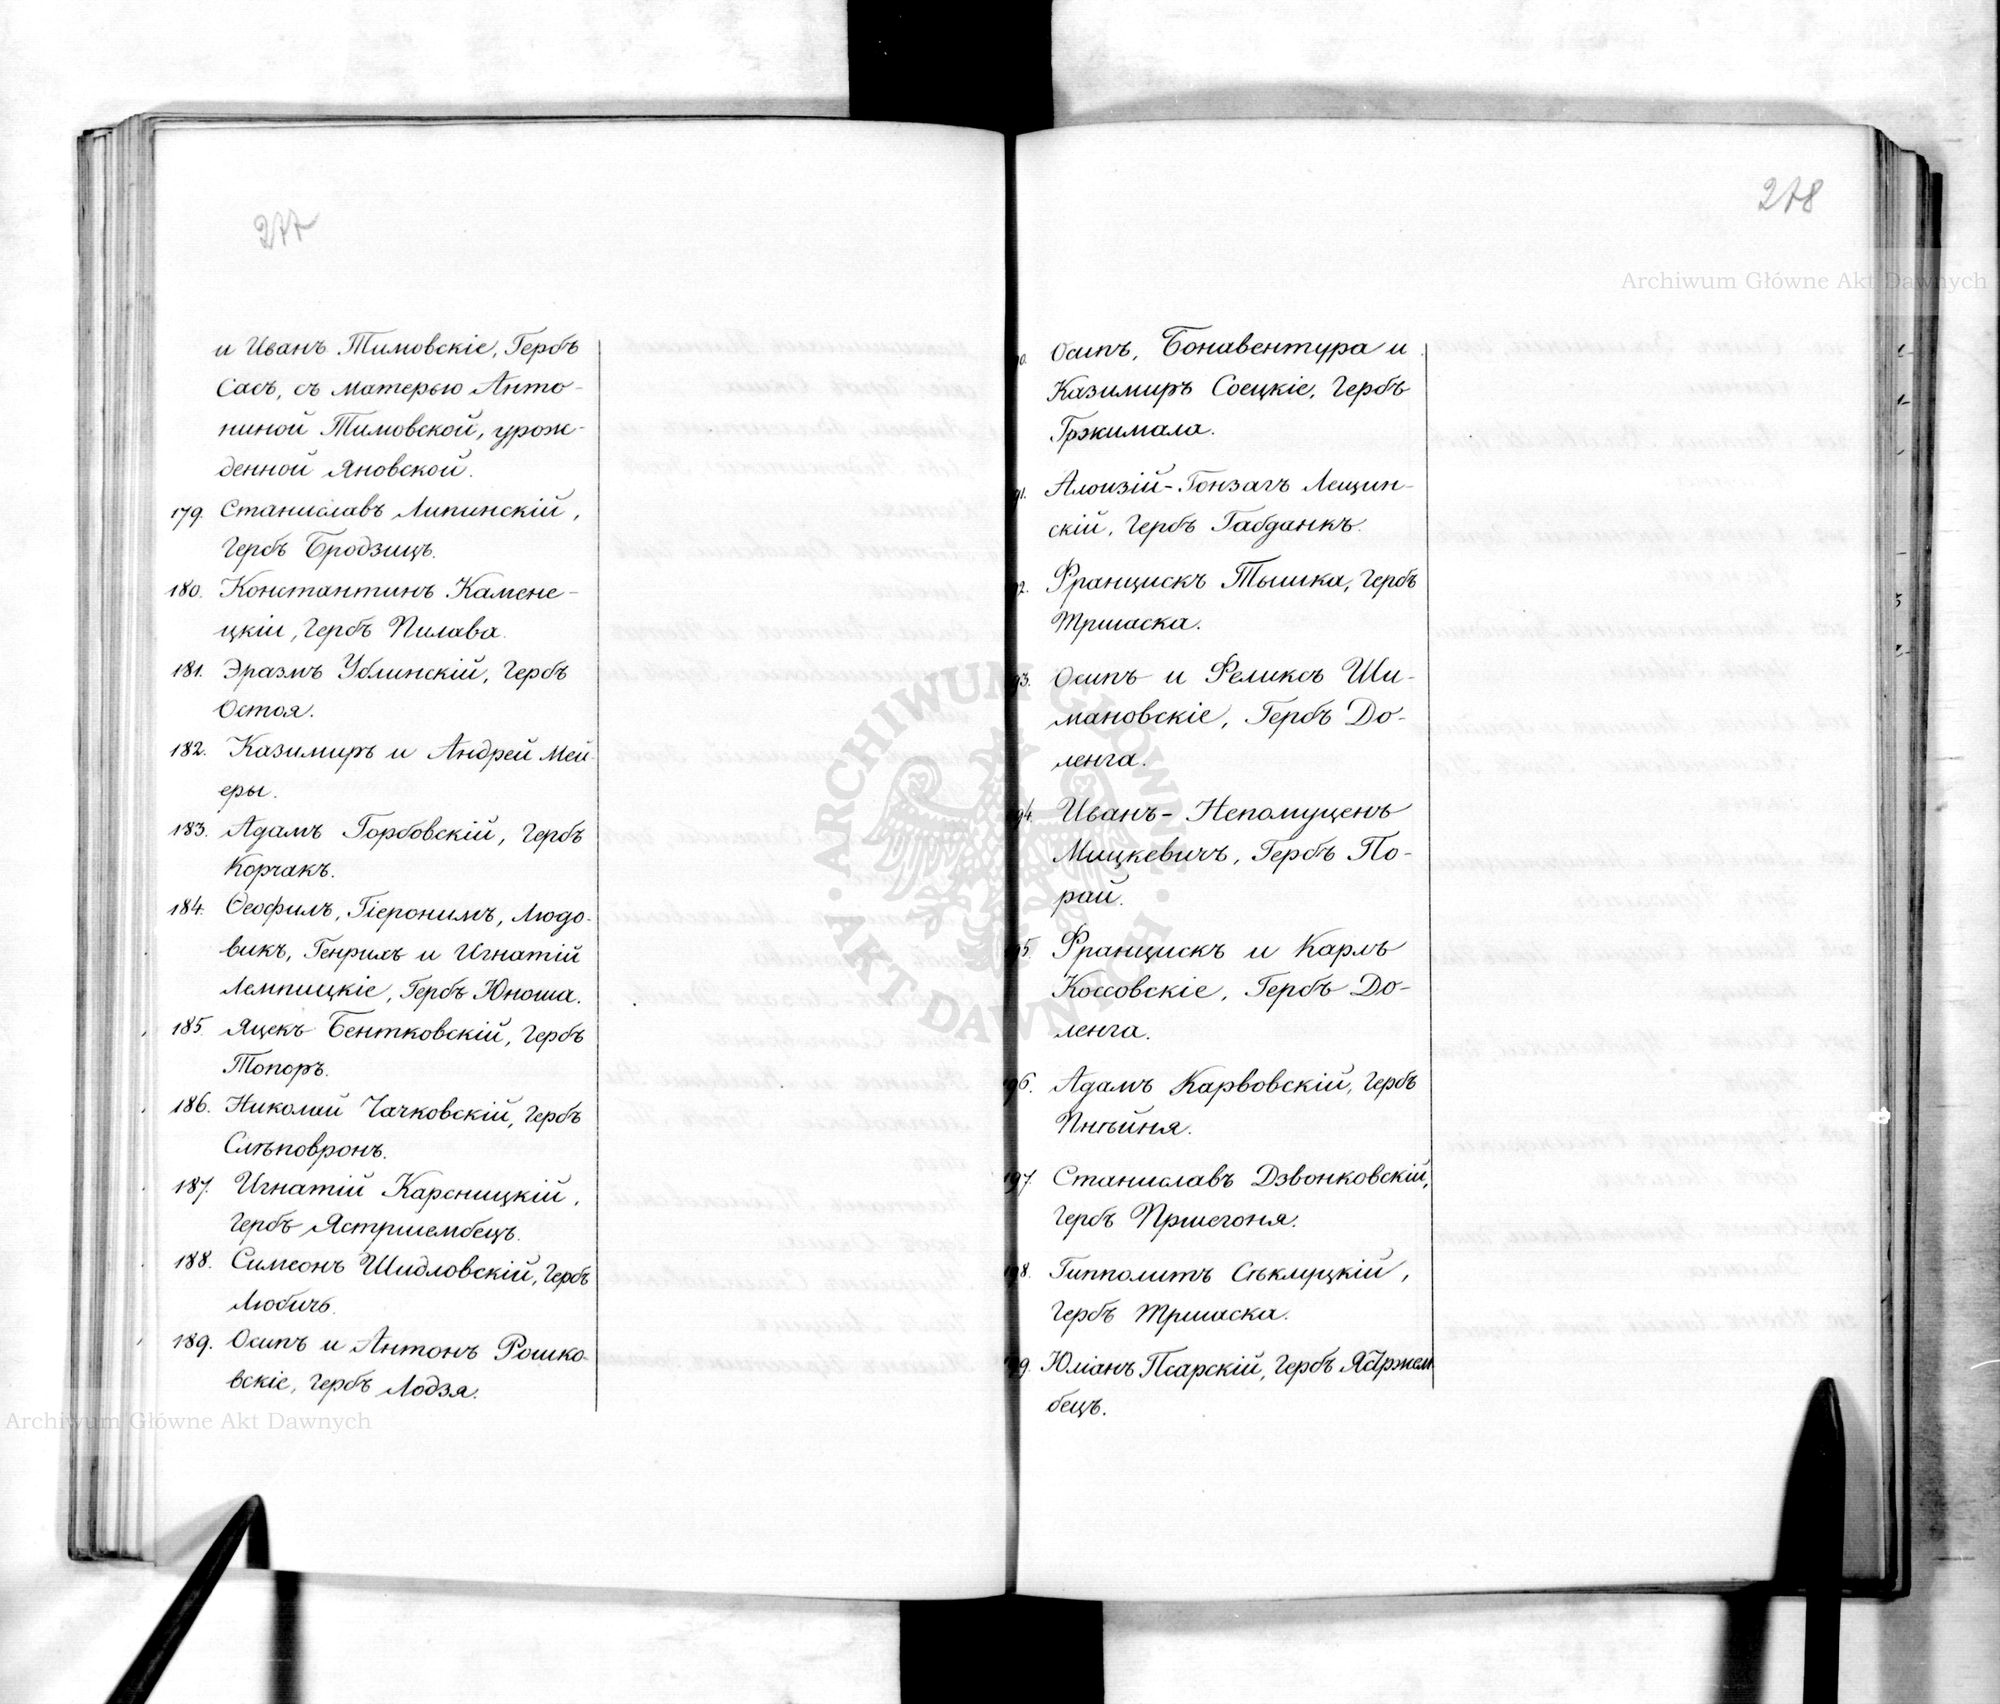 277
и Иванъ Тимовскіе, Гербъ
Сасъ, съ матерью Анто-
ниной Тимовской, урож-
денной Яновской.
179. Станиславъ Липинскій,
Гербъ Бродзицъ.
180. Константинъ Камене-
цкій, Гербъ Пилава.
181. Эразмъ Ублинскій, Гербъ
Остоя.
182. Казимиръ и Андрей Мей-
еры.
183. Адамъ Горбовскій, Гербъ
Корчакъ.
184. Ѳеофилъ, Гіеронимъ, Людо-
викъ, Генрихъ и Игнатій
Лемпицкіе, Гербъ Юноша.
185. Яцекъ Бентковскій, Гербъ
Топоръ.
186. Николай Чачковскій, Гербъ
Слѣповронъ.
187. Игнатій Карсницкій,
Гербъ Ястршембецъ.
188. Симеонъ Шидловскій, Гербъ
Любичъ.
189. Осипъ и Антонъ Рошко-
вскіе, Гербъ Лодзя.
278
0. Осипъ, Бонавентура и
Казимиръ Соецкіе, Гербъ
Гржимала.
91. Алоизій-Гонзагъ Лещин-
скій, Гербъ Габданкъ.
92. Францискъ Тышка, Гербъ
Тршаска.
93. Осипъ и Феликсъ Ши-
мановскіе, Гербъ До-
ленга.
94. Иванъ-Непомуценъ
Мицкевичъ, Гербъ По-
рай.
95. Францискъ и Карлъ
Коссовскіе, Гербъ До-
ленга.
196. Адамъ Карвовскій, Гербъ
Пнѣйня.
197. Станиславъ Дзвонковскій,
Гербъ Пршегоня.
198. Гипполитъ Сѣклуцкій,
Гербъ Тршаска.
199. Юліанъ Псарскій, Гербъ Ястржем
бецъ.
Archiwum Główne Akt Dawnych
Archiwum Główne Akt Dawnych
ARCHIWUM GŁÓWNE AKT DAWNYCH